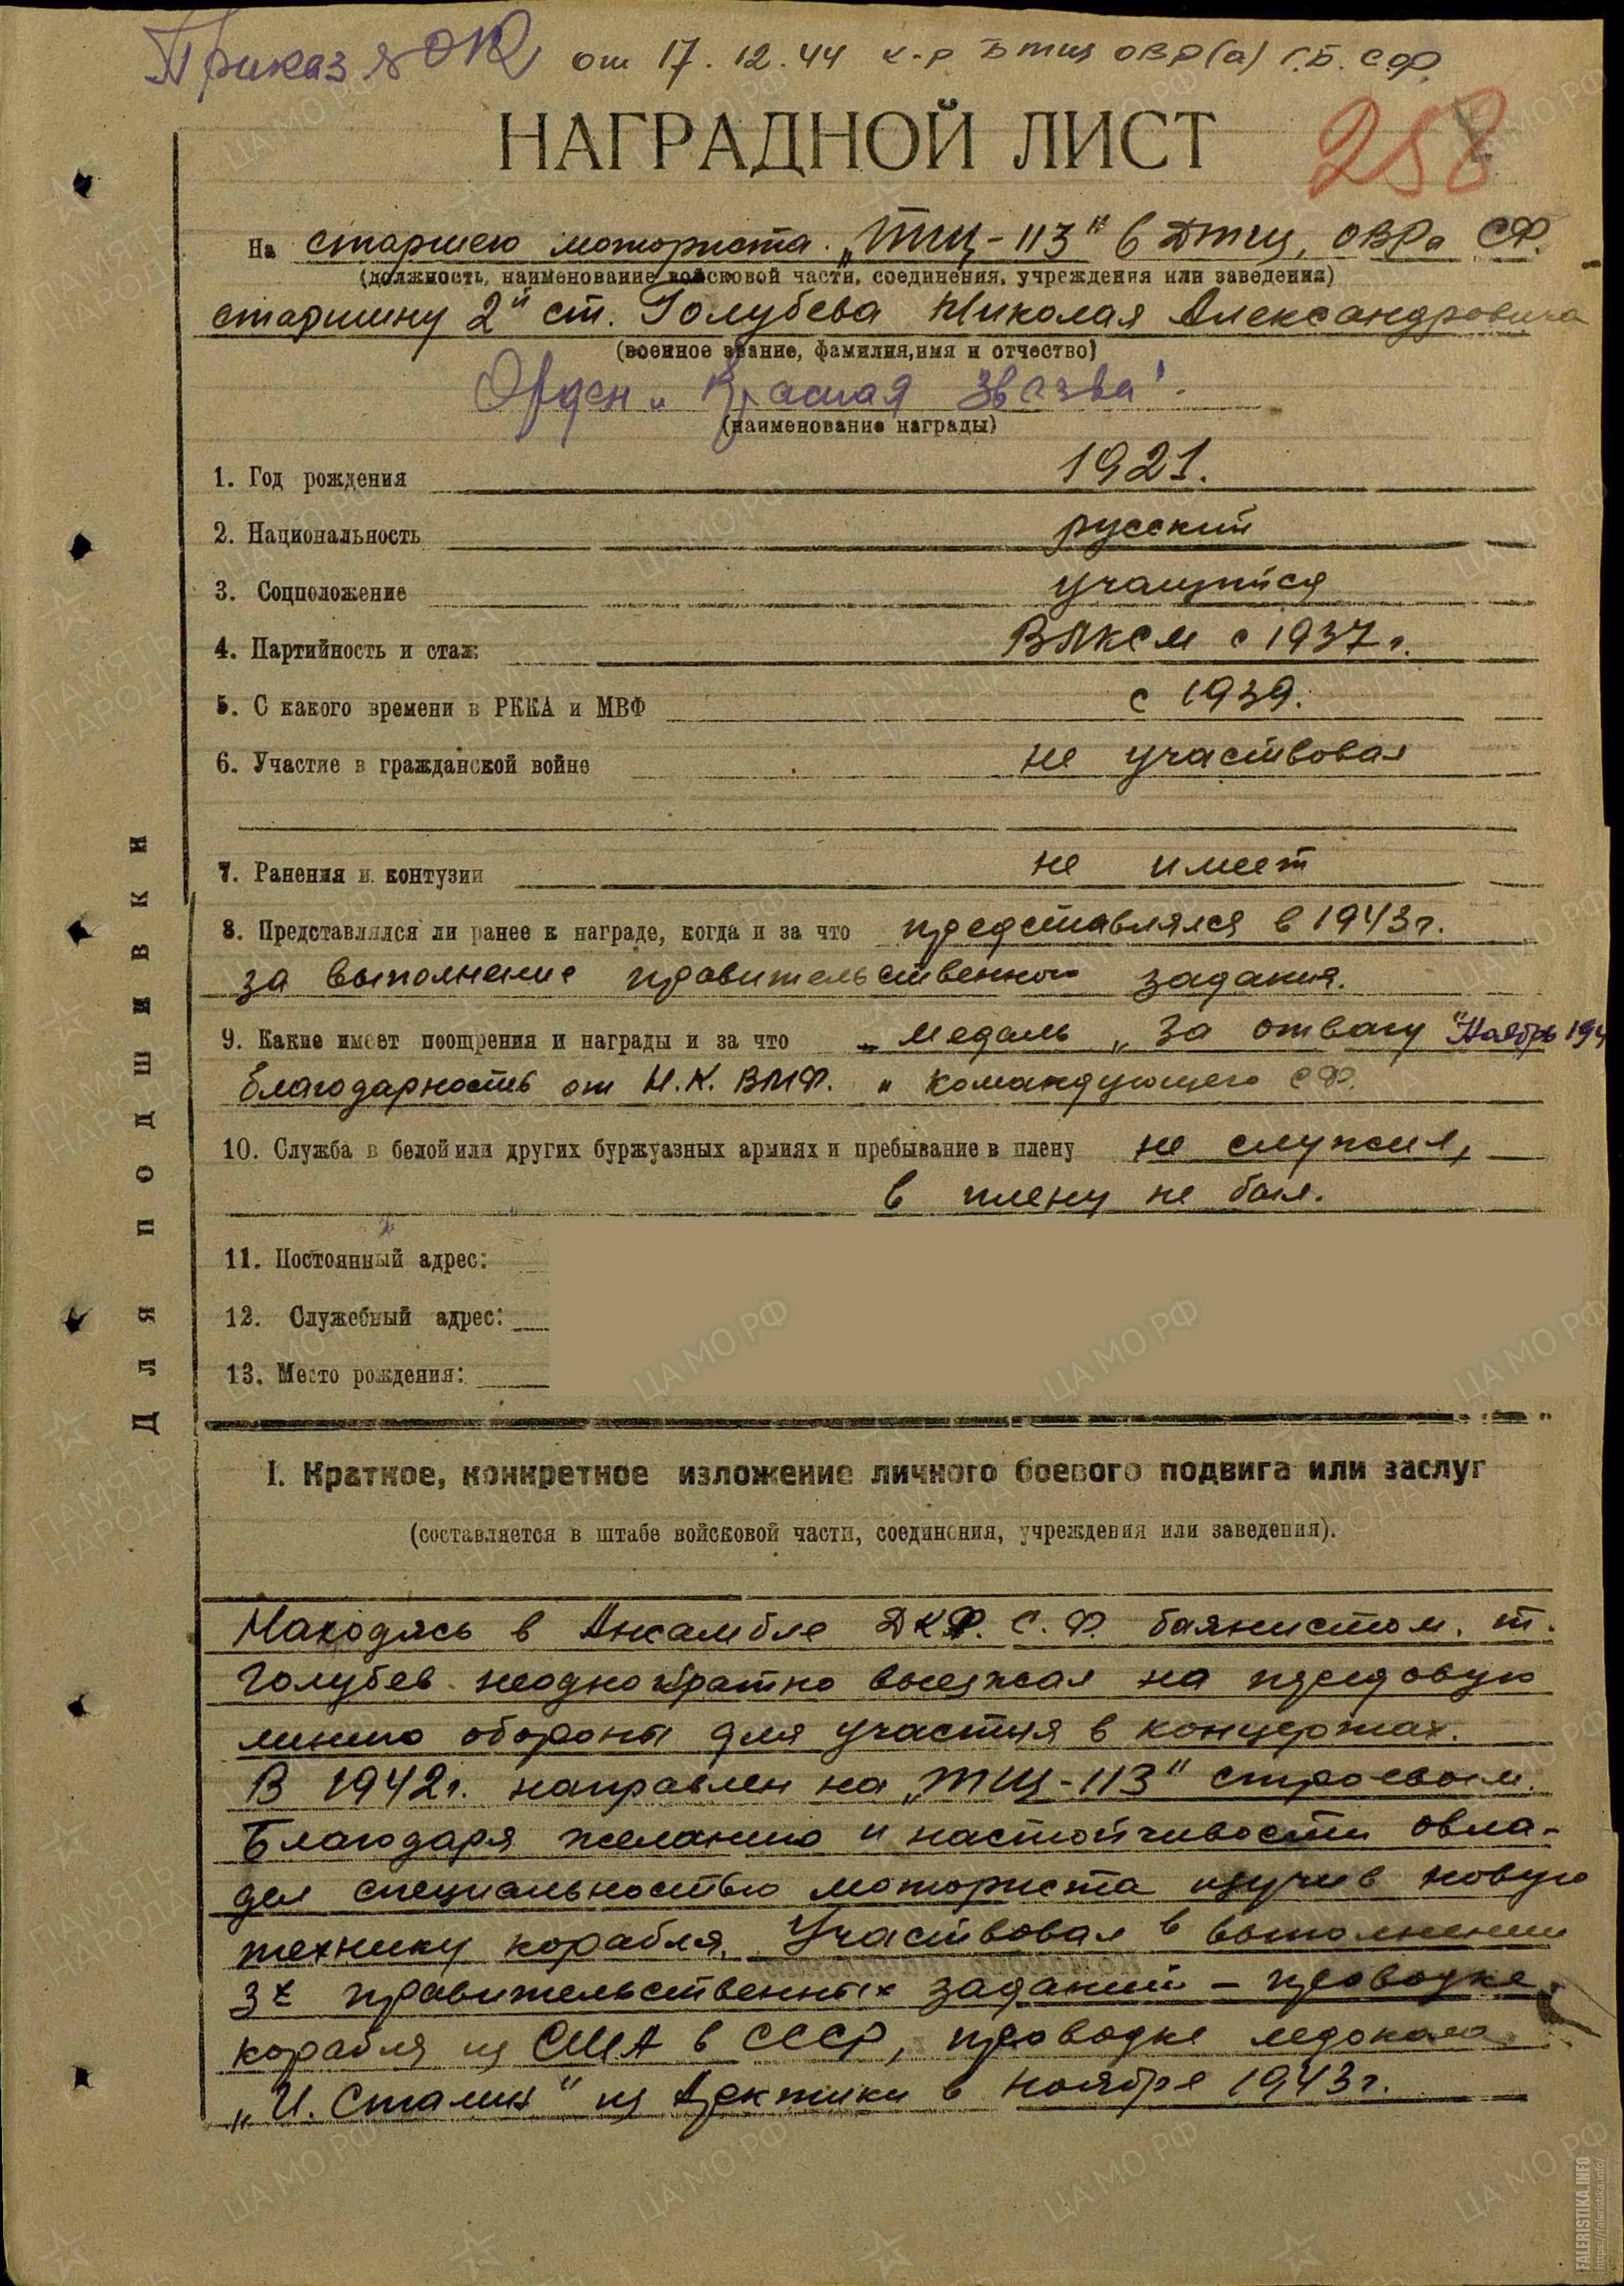 Приказ № от 17.12.44 к-р Бтщ ОВР(а) Г.Б. С.Ф.
НАГРАДНОЙ ЛИСТ
258
На старшего моториста „ТЩ-113" 6 Дтщ, ОВРа СФ.
(должность, наименование войсковой части, соединения, учреждения или заведения)
старшину 2й ст. Голубева Николая Александровича
(военное звание, фамилия, имя и отчество)
Орден „Красная Звезда".
(наименование награды)
1. Год рождения 1921.
2. Национальность русский
3. Соцположение учащийся
4. Партийность и стаж: ВЛКСМ с 1937 г.
5. С какого времени в РККА и МВФ с 1939.
6. Участие в гражданской войне не участвовал
7. Ранения и контузии не имеет
8. Представлялся ли ранее к награде, когда и за что представлялся в 1943г.
за выполнение правительственного задания.
9. Какие имеет поощрения и награды и за что - медаль „За отвагу" Ноябрь 194
благодарность от Н.К. ВМФ. и командующего СФ.
10. Служба в белой или других буржуазных армиях и пребывание в плену не служил,
в плену не был.
11. Постоянный адрес:
12. Служебный адрес:
13. Место рождения:
Для подшивки
I. Краткое, конкретное изложение личного боевого подвига или заслуг
(составляется в штабе войсковой части, соединения, учреждения или заведения).
Находясь в Ансамбле ДКФ. С.Ф. баянистом. т.
Голубев неоднократно выезжал на передовую
линию обороны для участия в концертах.
В 1942г. направлен на „ТЩ-113" строевым.
Благодаря желанию и настойчивости овла-
дел специальностью моториста изучив новую
технику корабля. Участвовал в выполнении
3х правительственных заданий – проводке
корабля из США в СССР, проводке ледокола
„И. Сталин" из Арктики в ноябре 1943г.
ПАМЯТЬ НАРОДА
ЦАМО РФ
FALERISTIKA.INFO
https://faleristika.info/